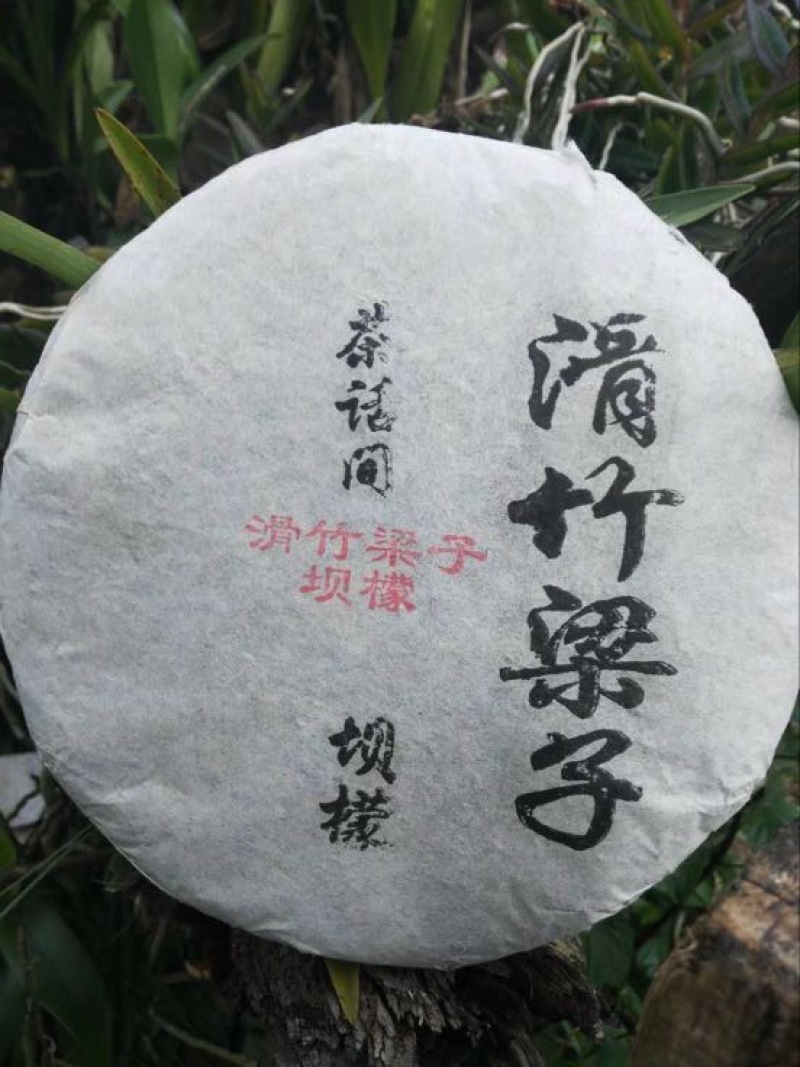 滑竹梁子
茶话间
坝檬
滑竹梁子
坝檬